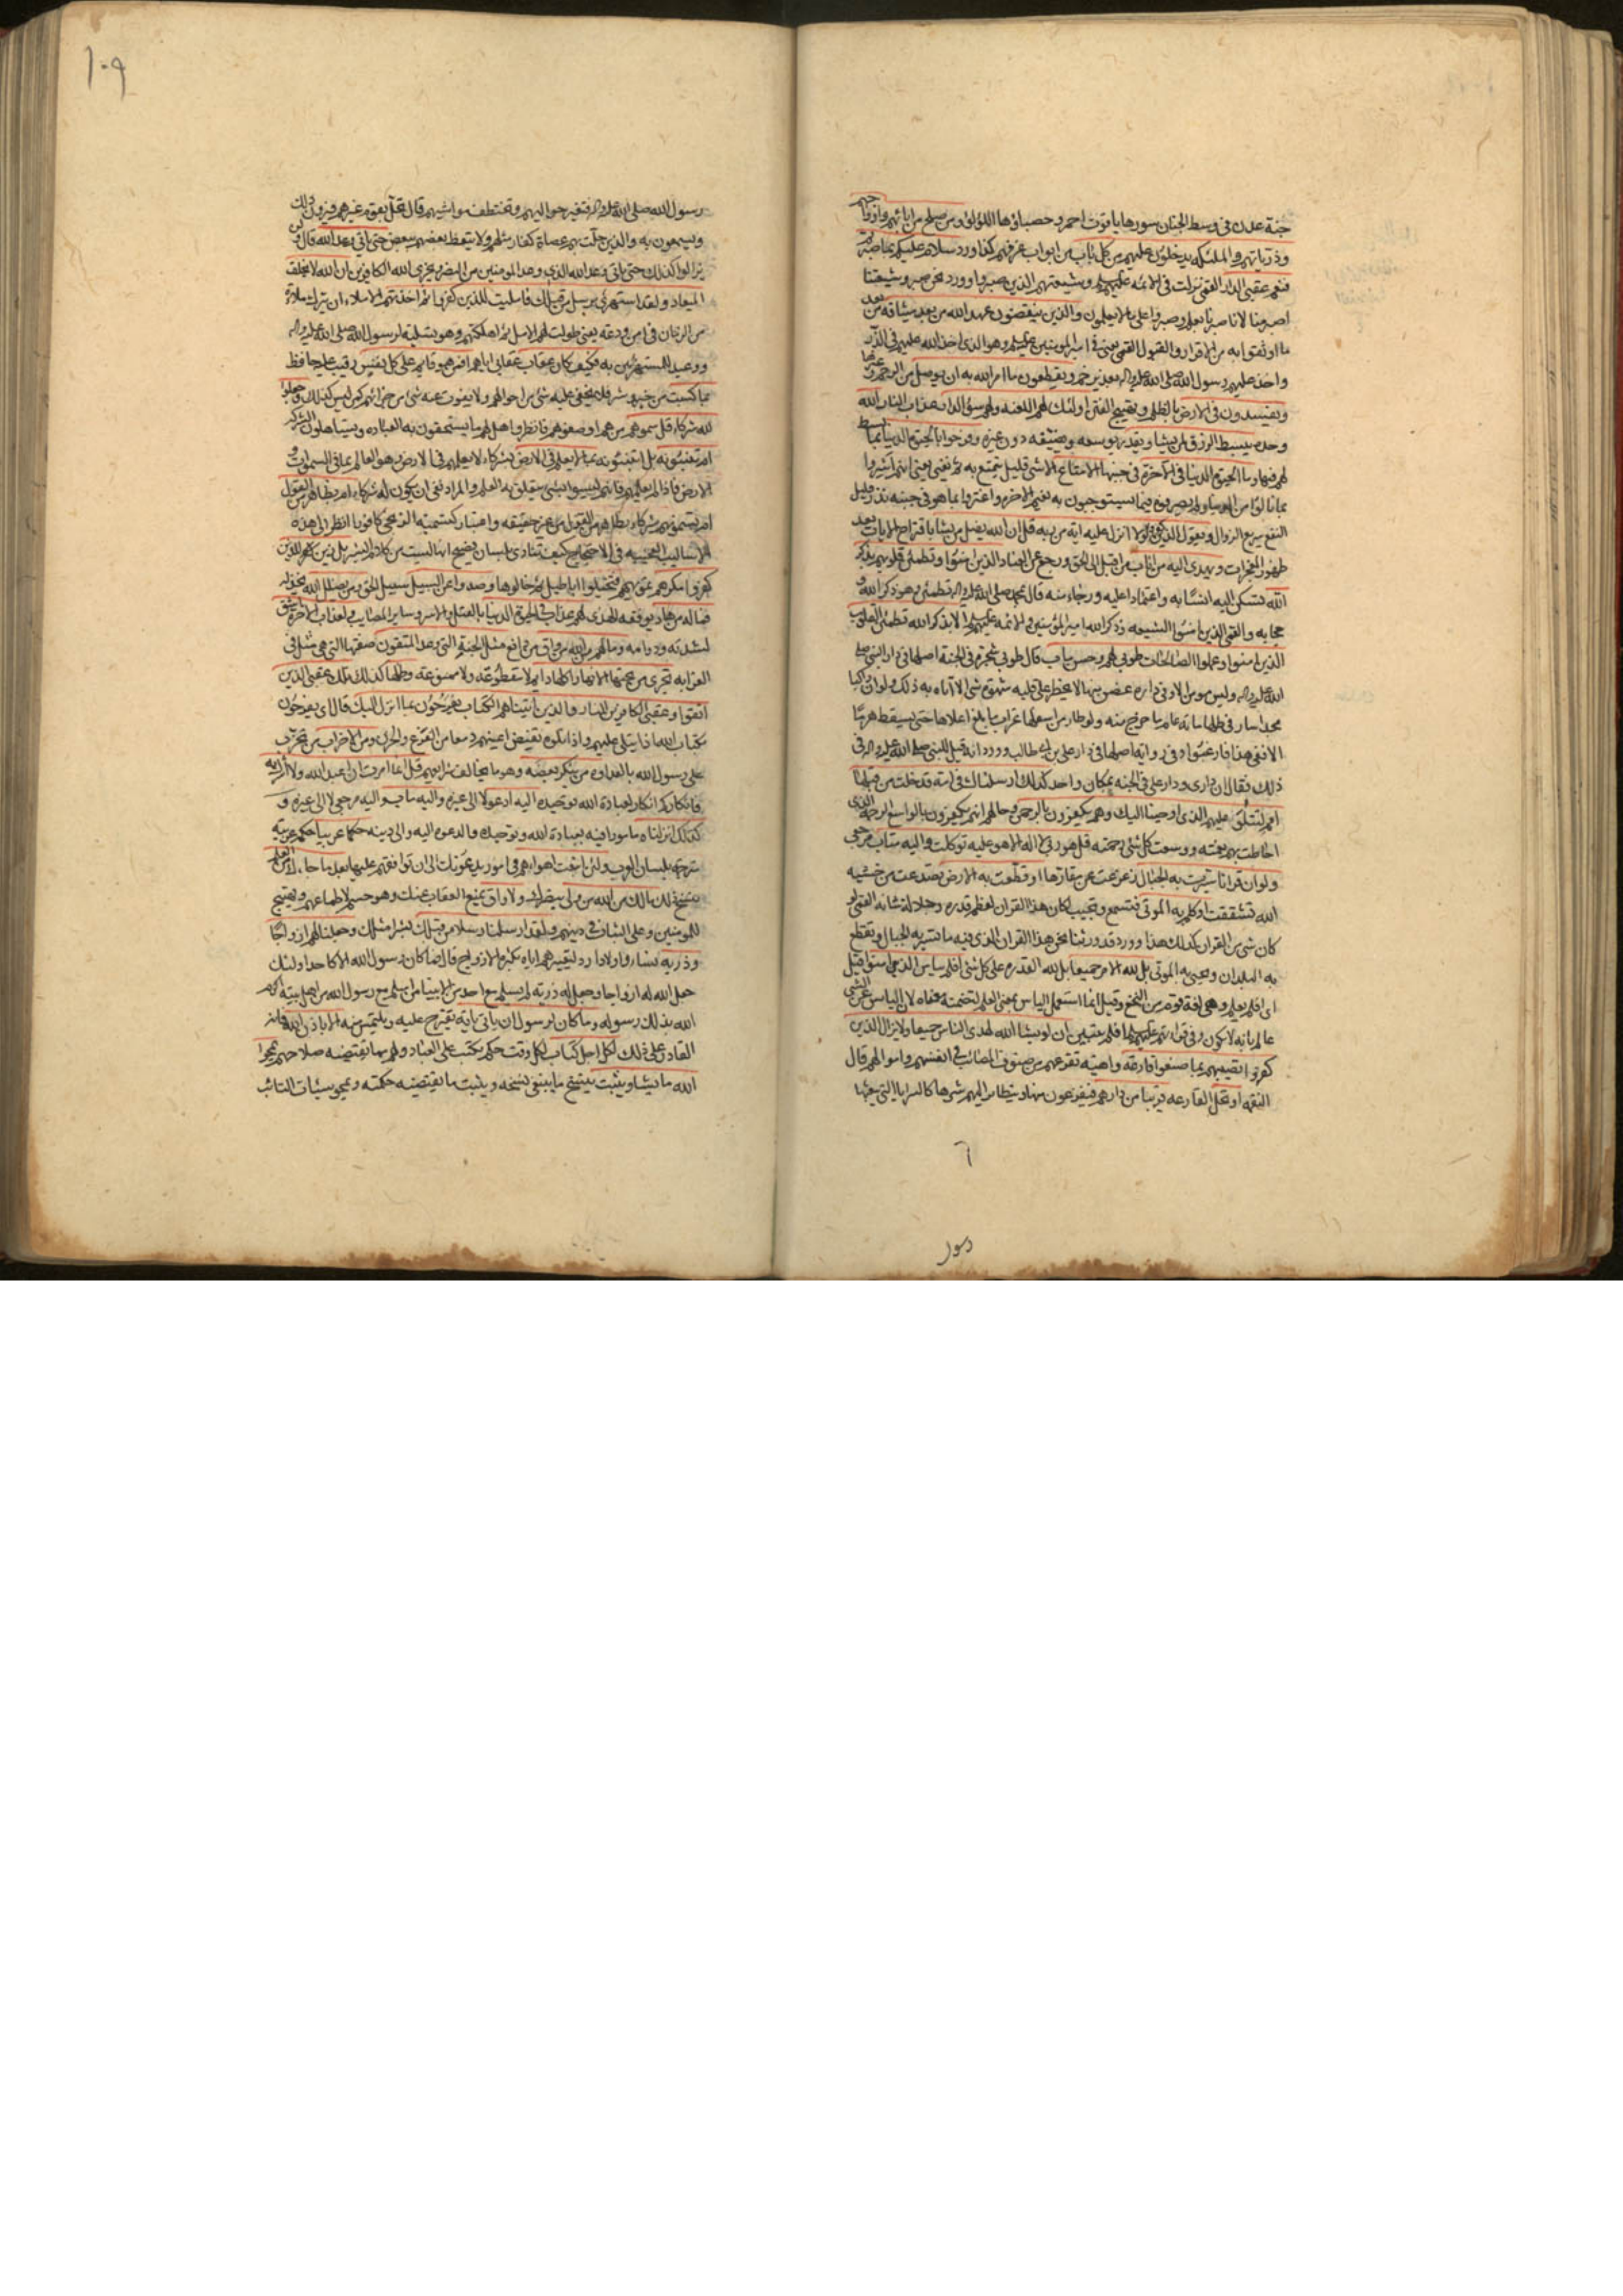 جنة عدن في وسط الجنان سورها ياقوت احمر وحصباؤها اللؤلؤ ومن صلح من ابائهم وازواجهم
وذرياتهم والملئكه يدخلون عليهم من كل باب من ابواب غرفهم كذا ورد سلام عليكم بما صبرتم
فنعم عقبى الدار القمي نزلت في الائمه عليهم وشيعتهم الذين صبروا وورد نحن صبر وشيعتنا
اصبر منا لانا صبرنا بعلم وصبروا على ما لا يعلمون والذين ينقضون عهد الله من بعد ميثاقه من بعد
ما اوثقوا به من الاقرار والقبول القمي يعني في امير المومنين عليه وهو الذي اخذ الله عليهم في الذر
واخذ عليهم رسول الله صلى الله عليه واله بغدير خم ويقطعون ما امر الله به ان يوصل من الرحم وغيرها
ويفسدون في الارض بالظلم وتهييج الفتن اولئك لهم اللعنه ولهم سوء الدار عذاب النار الله
وحده يبسط الرزق لمن يشاء ويقدر يوسعه ويضيقه دون غيره وفرحوا بالحيوة الدنيا بما بسط
لهم فيها وما الحيوة الدنيا في الاخرة في جنبها الا متاع الا شئ قليل يتمتع به ثم يفنى يعني انهم اشروا
بما نالوا من الدنيا ولم يصرفوه فيما يستوجبون به نعيم الاخره واغتروا بما هو في جنبه نذر قليل
النفع سريع الزوال ويقول الذين كفروا لولا انزل عليه اية من ربه قل ان الله يضل من يشاء باقتراح الايات بعد
ظهور المعجزات ويهدي اليه من اناب من اقبل الى الحق ورجع عن العناد الذين امنوا وتطمئن قلوبهم بذكر
الله تسكن اليه انسا به واعتمادا عليه ورجاء منه قال بمحمد صلى الله عليه واله تطمئن وهو ذكر الله و
حجابه والقمي الذين امنوا الشيعه وذكر الله امير المؤمنين والائمه عليهم الا بذكر الله تطمئن القلوب
الذين امنوا وعملوا الصالحات طوبى لهم وحسن ماب قال طوبى شجرة في الجنة اصلها في دار النبي صلى
الله عليه واله وليس مومن الا وفي داره غصن منها لا يخطر على قلبه شهوة شئ الا اتاه به ذلك ولو ان راكبا
مجدا سار في ظلها مائة عام ما خرج منه ولو طار من اسفلها غراب ما بلغ اعلاها حتى يسقط هرما
الا ففي هذا فارغبوا وفي رواية اصلها في دار علي بن ابي طالب وورد انه قيل للنبي صلى الله عليه واله في
ذلك فقال ان داري ودار علي في الجنه بمكان واحد كذلك ارسلناك في امة قد خلت من قبلها
امم لتتلو عليهم الذي اوحينا اليك وهم يكفرون بالرحمن وحالهم انهم يكفرون بالواسع الرحمة الذي
احاطت بهم نعمته ووسعت كل شئ رحمته قل هو ربي لا اله الا هو عليه توكلت واليه متاب مرجعي
ولو ان قرانا سيرت به الجبال زعزعت عن مقارها او قطعت به الارض تصدعت من خشيه
الله تشققت او كلم به الموتى فتسمع وتجيب لكان هذا القران لعظم قدره وجلالة شانه القمي لو
كان شئ من القران كذلك لكان هذا وورد قد ورثنا نحن هذا القران الذي فيه ما تسير به الجبال وتقطع
به البلدان وتحيى به الموتى بل لله الامر جميعا بل لله القدره على كل شئ افلم ييأس الذين امنوا قيل
اي افلم يعلم وهي لغة قوم من النخع وقيل انما استعمل الياس بمعنى العلم لتضمنه معناه لان اليائس عن الشئ
عالم بانه لا يكون وفي قرائتهم عليهم افلم يتبين ان لو يشاء الله لهدى الناس جميعا ولا يزال الذين
كفروا تصيبهم بما صنعوا قارعة داهية تقرعهم من صنوف المصائب في انفسهم واموالهم قال
النقمه او تحل القارعه قريبا من دارهم فيفزعون منها ويتطاير اليهم شررها كالسرايا التي يبعثها
رسول
١٠٩
رسول الله صلى الله عليه واله فتغير حواليهم وتختطف مواشيهم قال تحل بقوم غيرهم فيرون ذلك
ويسمعون به والذين حلت بهم عصاة كفار مثلهم ولا يتعظ بعضهم ببعض حتى ياتي وعد الله قال ولن
يزالوا كذلك حتى ياتي وعد الله الذي وعد المومنين من النصر ويخزي الله الكافرين ان الله لا يخلف
الميعاد ولقد استهزئ برسل من قبلك فامليت للذين كفروا ثم اخذتهم الاملاء ان يترك ملاوة
من الزمان في امن ودعة يعني طولت لهم الامل ثم اهلكتهم وهو تسلية لرسول الله صلى الله عليه واله
ووعيد للمستهزئين به فكيف كان عقاب عقابي اياهم افمن هو قائم على كل نفس رقيب عليها حافظ
بما كسبت من خير وشر فلا يخفى عليه شئ من احوالهم ولا يفوت عنه شئ من جزائهم كمن ليس كذلك وجعلوا
لله شركاء قل سموهم من هم او صفوهم فانظروا هل لهم ما يستحقون به العباده ويستاهلون الشركه
ام تنبئونه بل اتنبئونه بما لا يعلم في الارض بشركاء لا يعلمهم في الارض وهو العالم بما في السموات و
الارض فاذا لم يعلمهم فانهم ليسوا بشئ يتعلق به العلم والمراد نفي ان يكون له شركاء ام بظاهر من القول
ام تسمونهم شركاء بظاهر من القول من غير حقيقه واعتبار كتسمية الزنجي كافورا انظر الى هذه
الاساليب العجيبه في الاحتجاج كيف تنادي بلسان فصيح انها ليست من كلام البشر بل زين للذين
كفروا مكرهم تمويههم فتخيلوا اباطيل ثم خالوها وصدوا عن السبيل سبيل الحق ومن يضلل الله يخذله
فما له من هاد يوفقه للهدى لهم عذاب في الحيوة الدنيا بالقتل والاسر وساير المصائب ولعذاب الاخرة اشق
لشدته ودوامه وما لهم من الله من واق من دافع مثل الجنة التي وعد المتقون صفتها التي هي مثل في
الغرابه تجري من تحتها الانهار اكلها دايم لا مقطوعة ولا ممنوعة وظلها كذلك تلك عقبى الذين
اتقوا وعقبى الكافرين النار والذين اتيناهم الكتاب يفرحون بما انزل اليك قال اي يفرحون
بكتاب الله اذا يتلى عليهم واذا تلوه تفيض اعينهم دمعا من الفزع والحزن ومن الاحزاب من تحزب
على رسول الله بالعداوه من ينكر بعضه وهو ما يخالف شرايعهم قل انما امرت ان اعبد الله ولا اشرك به
فانكاركم انكار لعبادة الله وتوحيده اليه ادعو لا الى غيره واليه ماب واليه مرجعي لا الى غيره و
كذلك انزلناه مامورا فيه بعبادة الله وتوحيده والدعوه اليه والى دينه حكما عربيا حكمه عربيه
مترجمة بلسان العرب ولئن اتبعت اهواءهم في امور يدعونك الى ان توافقهم عليها بعد ما جاءك من العلم
بنسخ ذلك مالك من الله من ولي ينصرك ولا واق يمنع العقاب عنك وهو حسم لاطماعهم وتهييج
للمومنين وعلى الثبات في دينهم ولقد ارسلنا رسلا من قبلك بشرا مثلك وجعلنا لهم ازواجا
وذرية نساء واولادا رد لتعييرهم اياه بكثرة الازواج قال فما كان رسول الله الا كاحد اولئك
جعل الله له ازواجا وجعل له ذرية لم يسلم مع احد من الانبياء من اسلم مع رسول الله من اهل بيته اكرم
الله بذلك رسوله وما كان لرسول ان ياتي باية تقترح عليه ويلتمس منه الا باذن الله فانه
القادر على ذلك لكل اجل كتاب لكل وقت حكم يكتب على العباد ولهم ما تقتضيه صلاحهم يمحوا
الله ما يشاء ويثبت ينسخ ما ينبغي نسخه ويثبت ما يقتضيه حكمته ويمحو سيئات التائب